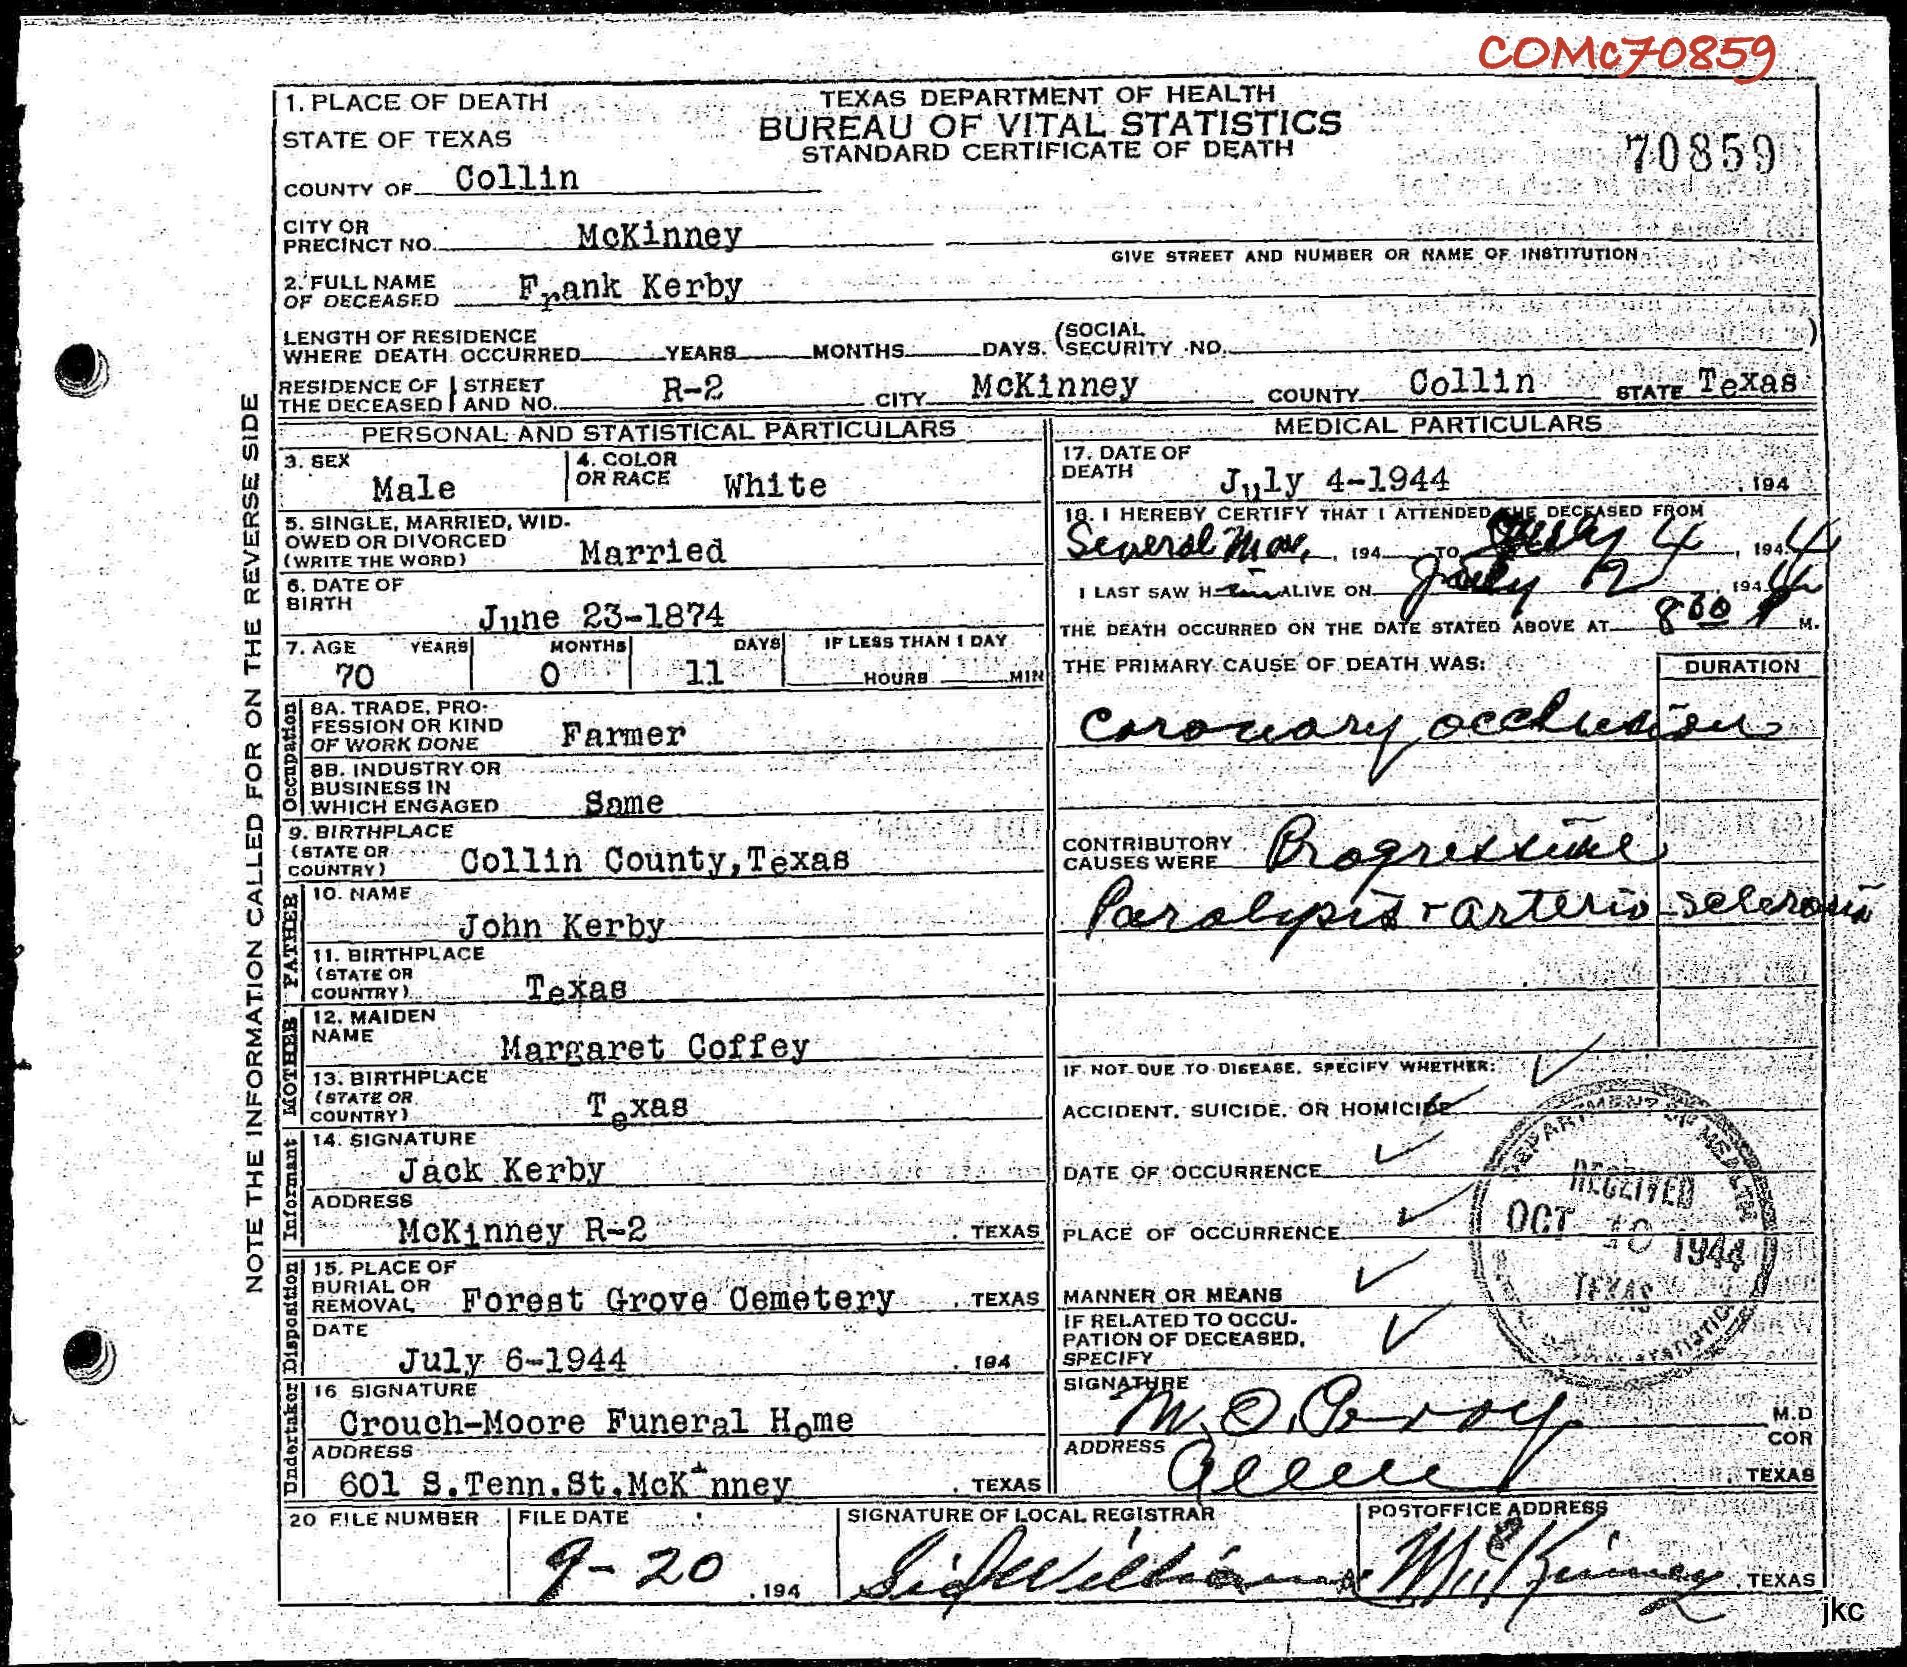 COMc70859
1. PLACE OF DEATH
STATE OF TEXAS
COUNTY OF Collin
TEXAS DEPARTMENT OF HEALTH
BUREAU OF VITAL STATISTICS
STANDARD CERTIFICATE OF DEATH
70859
CITY OR
PRECINCT NO. McKinney
GIVE STREET AND NUMBER OR NAME OF INSTITUTION
2. FULL NAME
OF DECEASED Frank Kerby
LENGTH OF RESIDENCE
WHERE DEATH OCCURRED YEARS MONTHS DAYS. (SOCIAL
SECURITY NO. )
RESIDENCE OF
THE DECEASED
STREET
AND NO. R-2 CITY McKinney COUNTY Collin STATE Texas
NOTE THE INFORMATION CALLED FOR ON THE REVERSE SIDE
PERSONAL AND STATISTICAL PARTICULARS
3. SEX
Male
4. COLOR
OR RACE White
5. SINGLE, MARRIED, WID-
OWED OR DIVORCED
(WRITE THE WORD) Married
6. DATE OF
BIRTH
June 23-1874
7. AGE YEARS MONTHS DAYS IF LESS THAN 1 DAY
70 0 11 HOURS MIN
Occupation
8A. TRADE, PRO-
FESSION OR KIND
OF WORK DONE Farmer
8B. INDUSTRY OR
BUSINESS IN
WHICH ENGAGED Same
9. BIRTHPLACE
(STATE OR
COUNTRY) Collin County,Texas
FATHER
10. NAME
John Kerby
11. BIRTHPLACE
(STATE OR
COUNTRY) Texas
MOTHER
12. MAIDEN
NAME
Margaret Coffey
13. BIRTHPLACE
(STATE OR
COUNTRY) Texas
Informant
14. SIGNATURE
Jack Kerby
ADDRESS
McKinney R-2 , TEXAS
Disposition
15. PLACE OF
BURIAL OR
REMOVAL Forest Grove Cemetery , TEXAS
DATE
July 6-1944 , 194
Undertaker
16 SIGNATURE
Crouch-Moore Funeral Home
ADDRESS
601 S.Tenn.St.McKinney , TEXAS
MEDICAL PARTICULARS
17. DATE OF
DEATH July 4-1944 , 194
18. I HEREBY CERTIFY THAT I ATTENDED THE DECEASED FROM
Several Mos. , 194 TO July 4 , 1944
I LAST SAW Him ALIVE ON July 2 , 1944
THE DEATH OCCURRED ON THE DATE STATED ABOVE AT 8 30 P M.
THE PRIMARY CAUSE OF DEATH WAS: DURATION
Coronary occlusion
CONTRIBUTORY
CAUSES WERE Progressive
Paralysis + arterio-sclerosis
IF NOT DUE TO DISEASE, SPECIFY WHETHER:
ACCIDENT, SUICIDE, OR HOMICIDE
DATE OF OCCURRENCE
PLACE OF OCCURRENCE
MANNER OR MEANS
IF RELATED TO OCCU-
PATION OF DECEASED,
SPECIFY
DEPARTMENT OF HEALTH
RECEIVED
OCT 10 1944
TEXAS
SIGNATURE
M.D
COR
ADDRESS Allen , TEXAS
20 FILE NUMBER
FILE DATE
9-20 , 194
SIGNATURE OF LOCAL REGISTRAR
Sid Williams
POSTOFFICE ADDRESS
McKinney , TEXAS
jkc